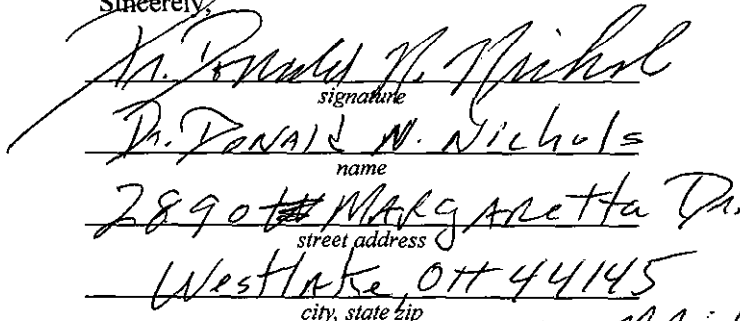 Sincerely,
Dr. Donald N. Nichol
signature
Dr. DONALD N. Nichols
name
2890 MARgARetta Dr.
street address
Westlake, OH 44145
city, state zip